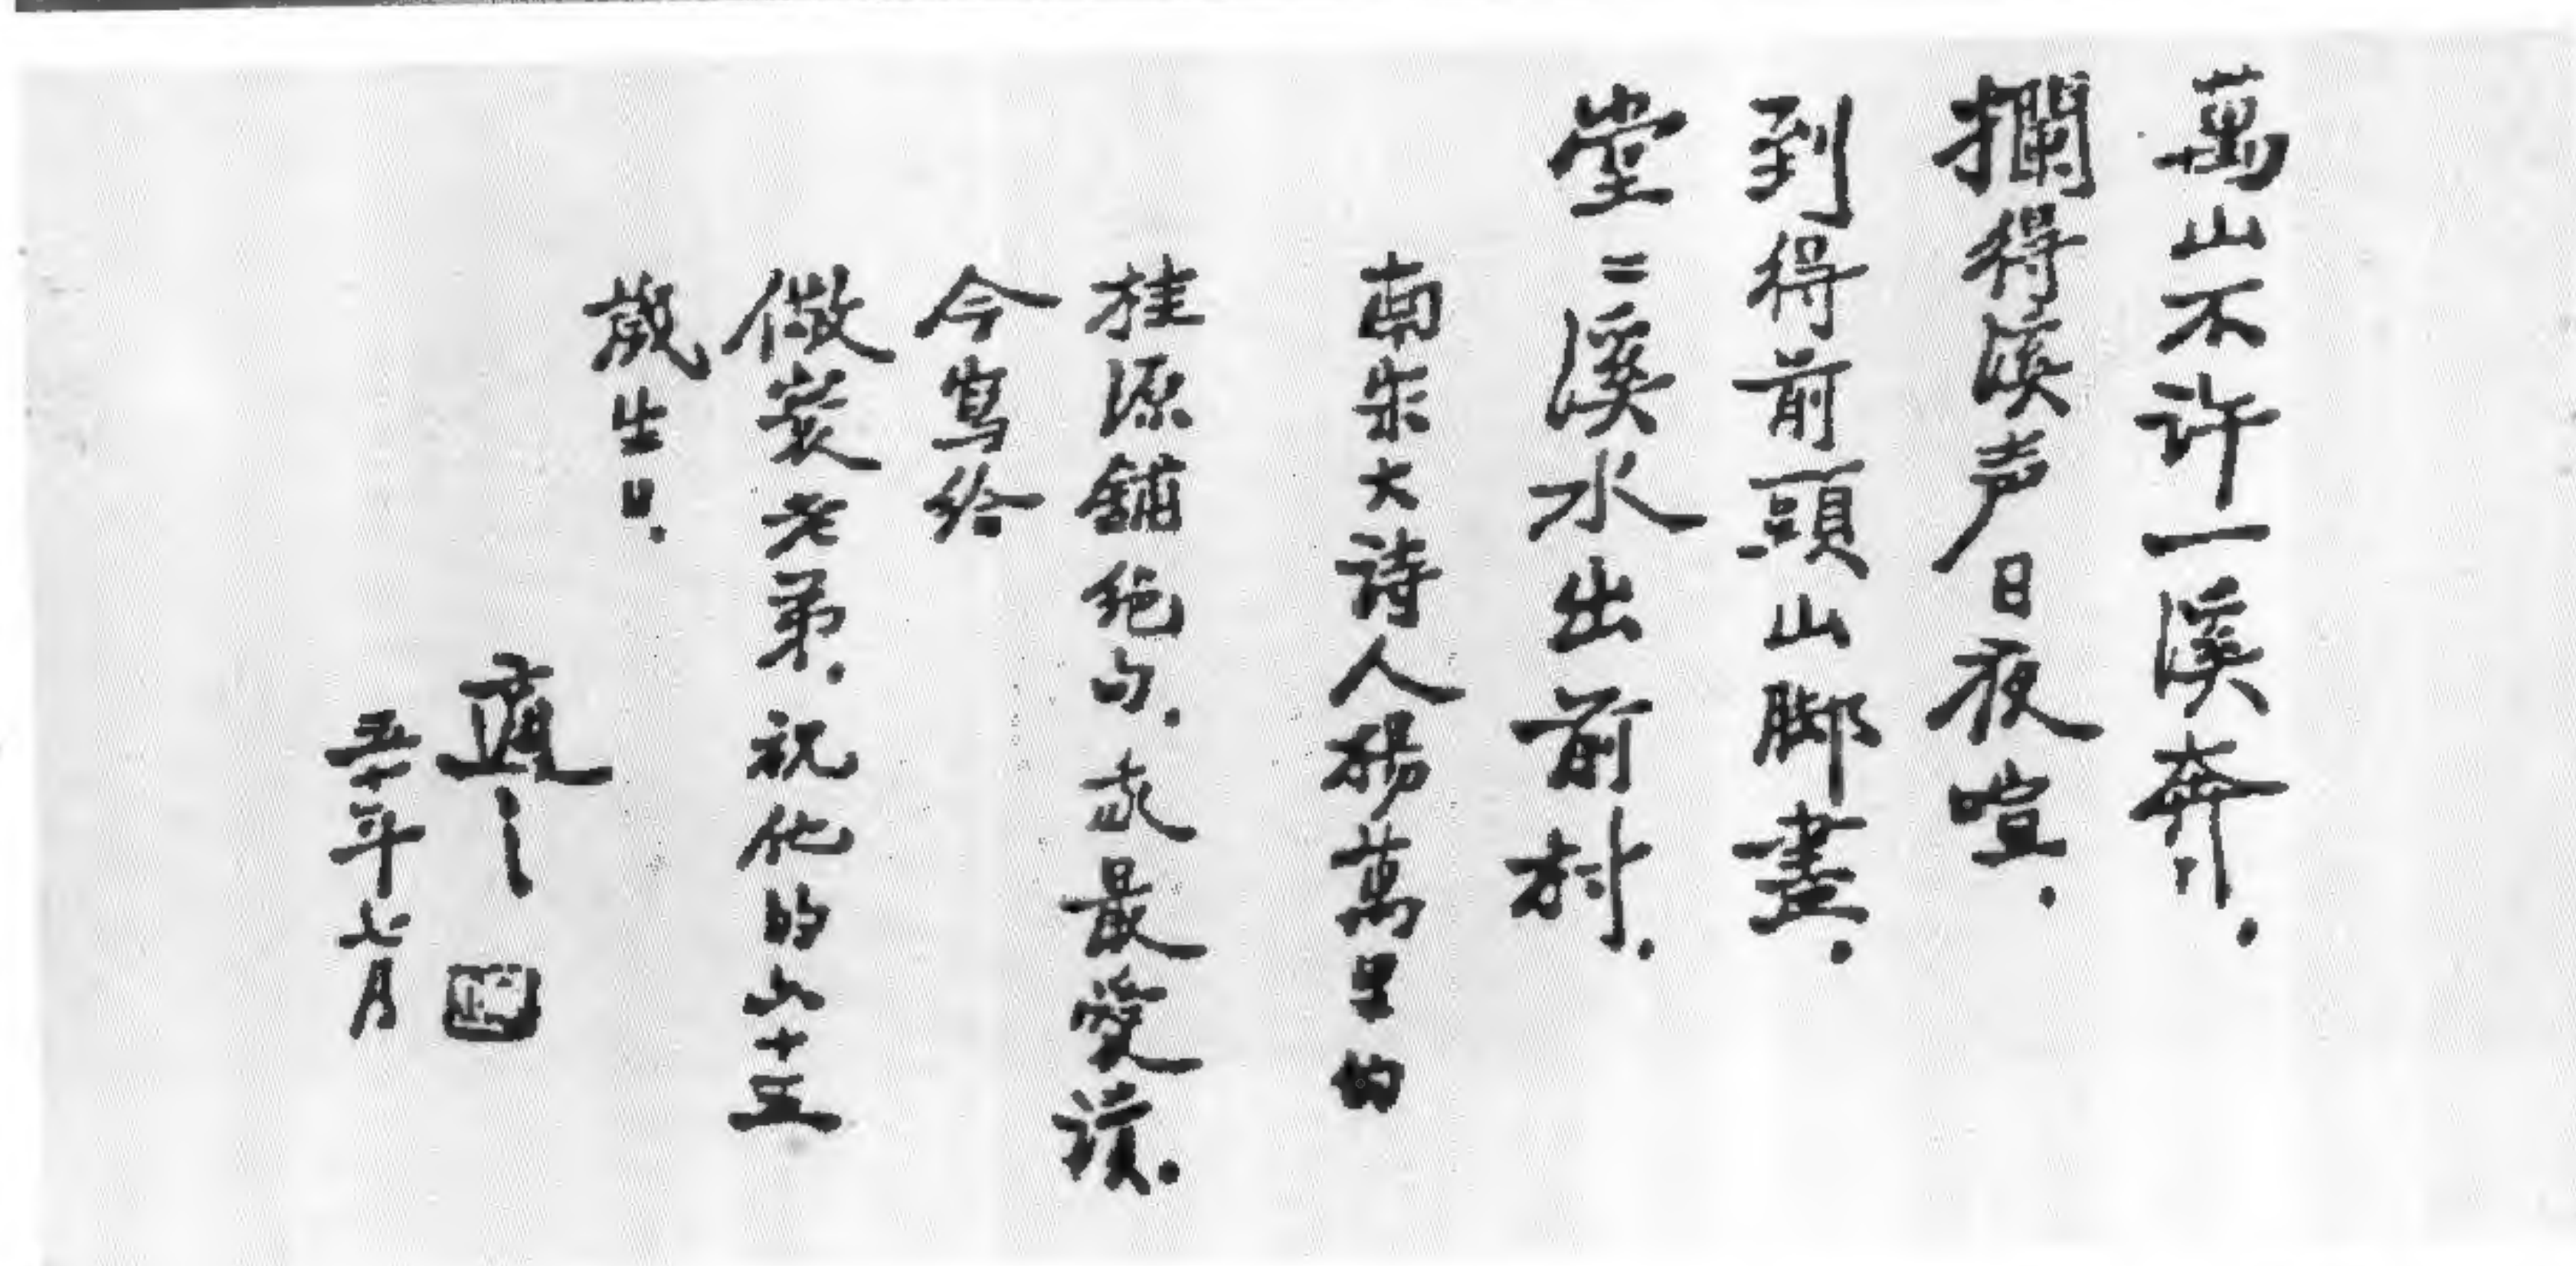 萬山不许一溪奔.
攔得溪声日夜喧.
到得前頭山脚盡.
堂〻溪水出前村.
南宋大詩人楊萬里的
桂源鋪絕句.我最愛讀.
今寫給
儆寰老弟.祝他的六十五
歲生日.
適之
五十年七月